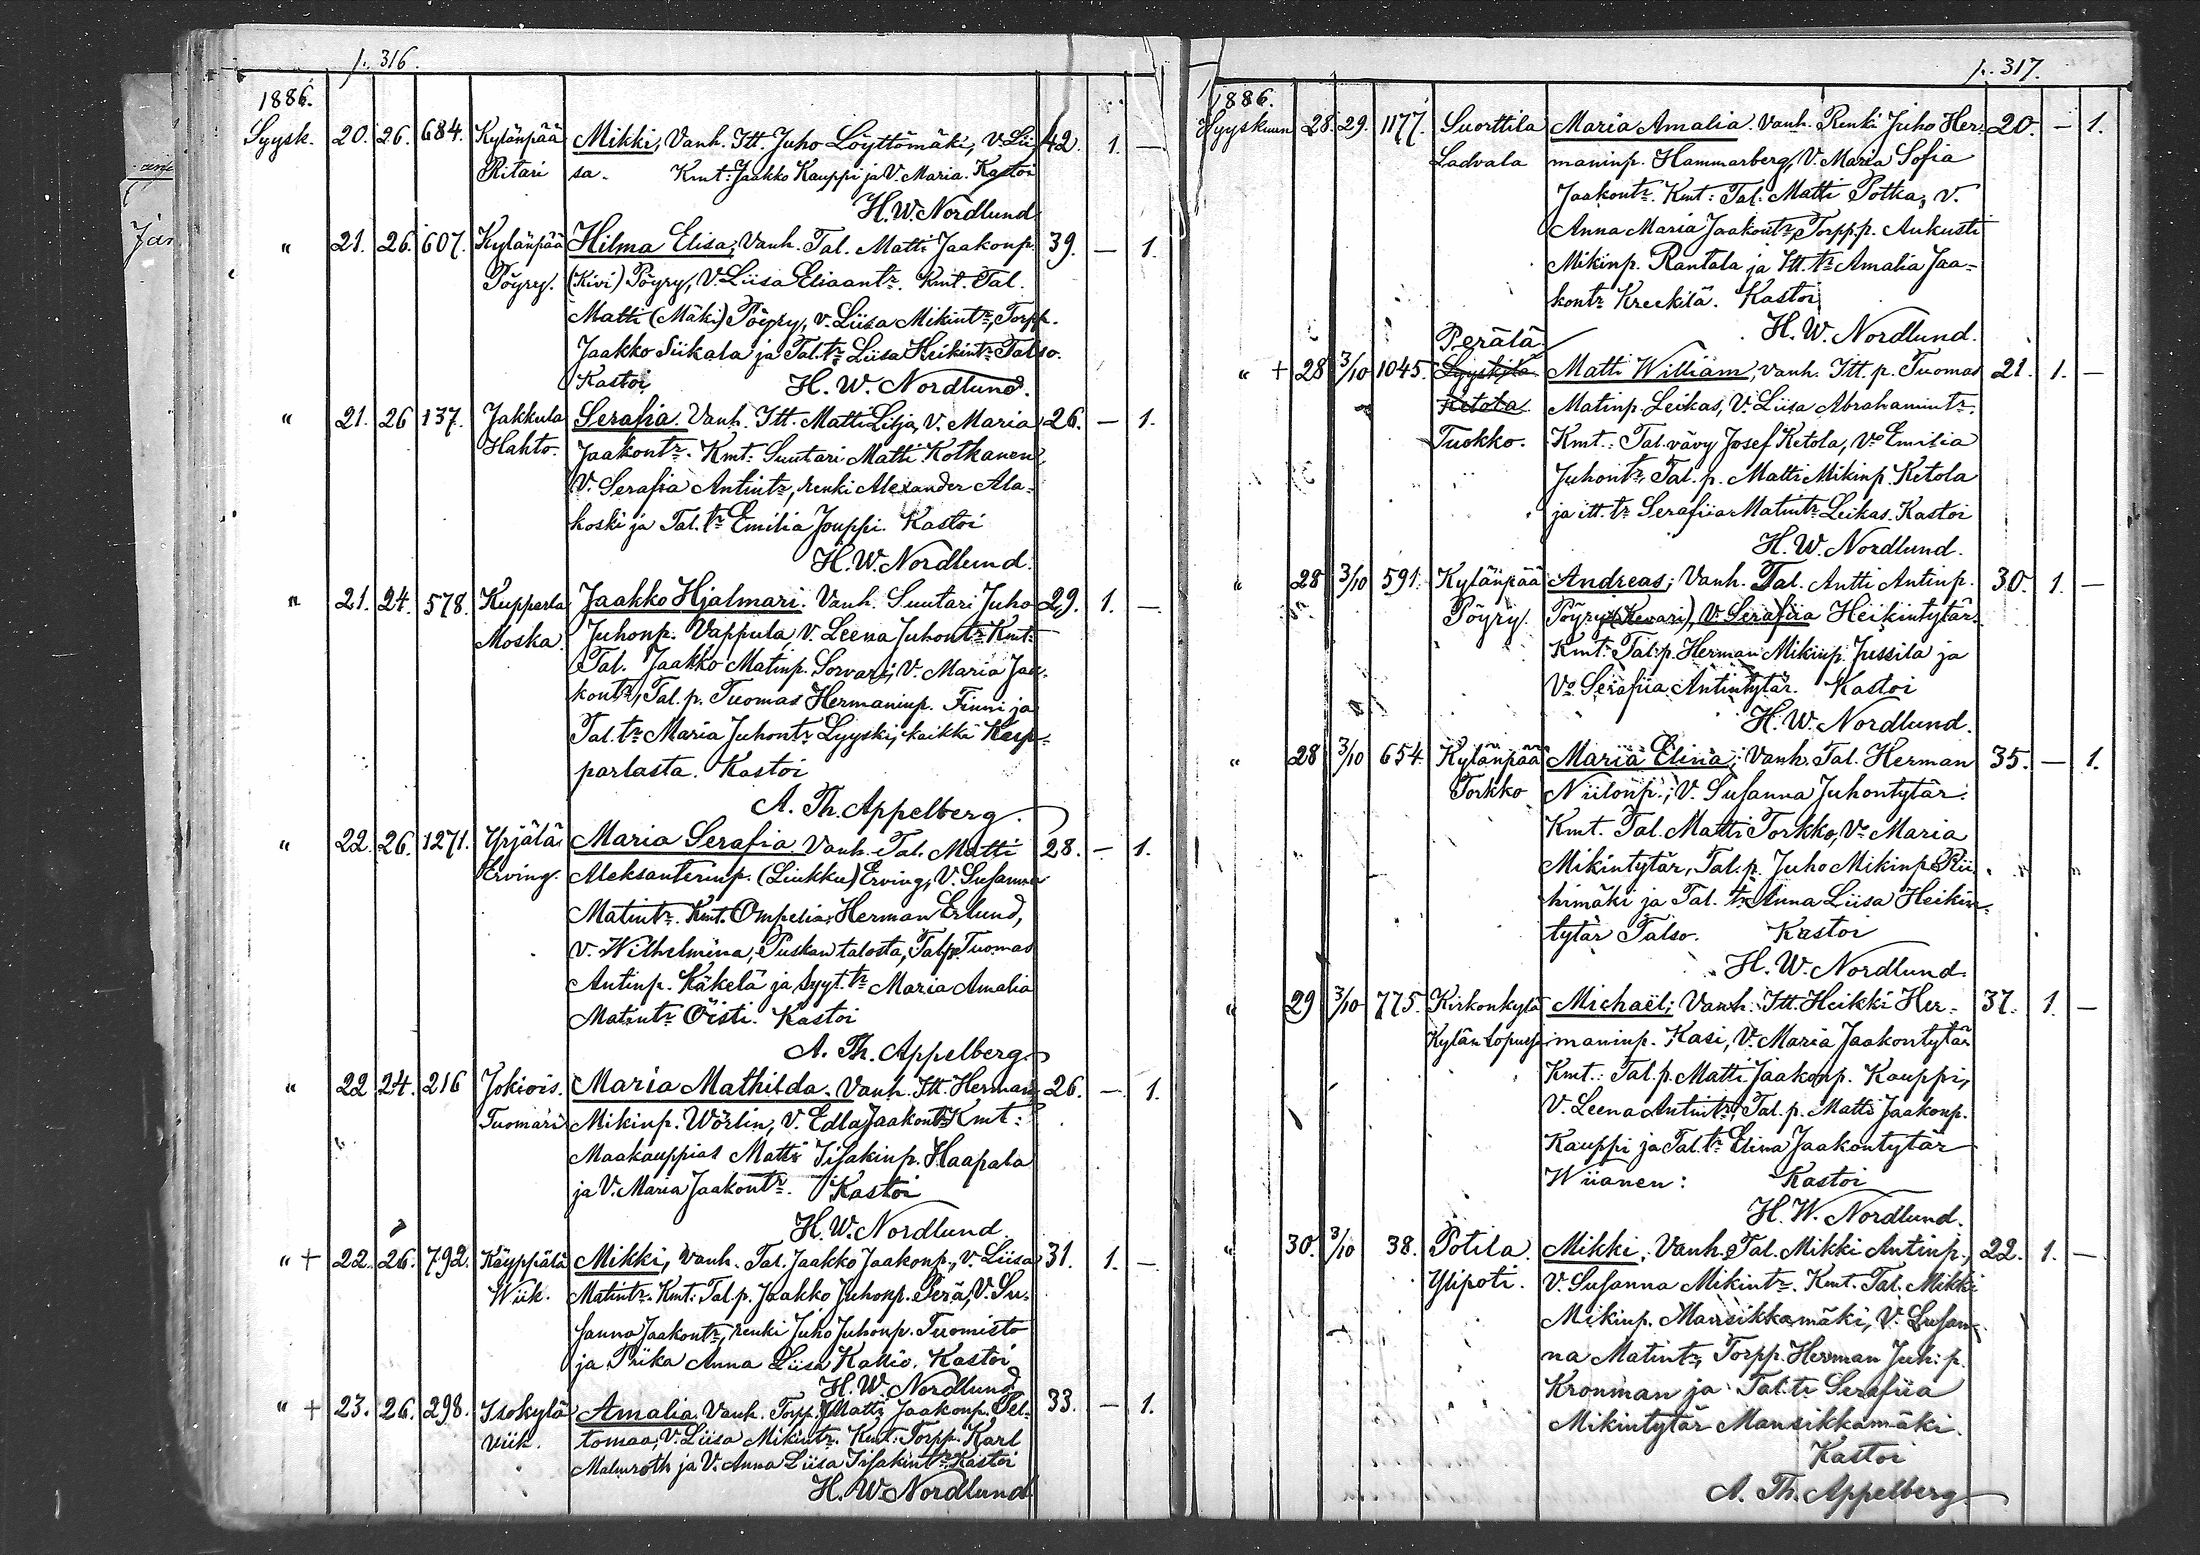 p. 316.
1886.
Syysk. 20. 26. 684. Kylänpää Mikki, Vanh. Itt. Juho Löyttömäki, V. Lii- 42. 1. —
Ritari sa. Kmt: Jaakko Kauppi ja V. Maria. Kastoi
H. W. Nordlund
" 21. 26. 607. Kylänpää Hilma Elisa, Vanh. Tal. Matti Jaakonp. 39. — 1.
Pöyry. (Kivi) Pöyry, V. Liisa Eliaantr. Kmt. Tal.
Matti (Mäki) Pöyry, v. Liisa Mikintr, Torpp.
Jaakko Siikala ja Tal. tr Liisa Heikintr Talso.
Kastoi H. W. Nordlund.
" 21. 26 137. Jakkula Serafia. Vanh. Itt. Matti Lilja, V. Maria 26. — 1.
Hahto. Jaakontr. Kmt: Suutari Matti Kotkanen,
V. Serafia Antintr, renki Alexander Ala-
koski ja Tal. tr Emilia Jouppi. Kastoi
H. W. Nordlund.
" 21. 24. 578. Kupparla Jaakko Hjalmari. Vanh. Suutari Juho 29. 1. —
Moska. Juhonp. Vappula V. Leena Juhontr Kmt:
Tal. Jaakko Matinp. Sorvari, V. Maria Jaa-
kontr, Tal. p. Tuomas Hermaninp. Finni ja
Tal. tr Maria Juhontr Lyyski, kaikki Kup-
parlasta. Kastoi
A. Th. Appelberg.
" 22. 26. 1271. Yrjälä Maria Serafia. Vanh. Tal. Matti 28. — 1.
Erving. Aleksanterinp. (Liukku) Erving, V. Susanna
Matintr. Kmt. Ompelia Herman Erlund,
v. Wilhelmina, Puskan talosta, Tal. p. Tuomas
Antinp. Käkelä ja syyt. tr Maria Amalia
Matintr Öisti. Kastoi
A. Th. Appelberg
" 22 24. 216 Jokiois. Maria Mathilda. Vanh. Itt. Herman 26. — 1.
Tuomari Mikinp. Wörlin, V. Edla Jaakontr Kmt:
Maakauppias Matti Iisakinp. Haapala
ja V. Maria Jaakontr. Kastoi
H. W. Nordlund.
" + 22. 26. 792. Käyppälä Mikki, Vanh. Tal. Jaakko Jaakonp., v. Liisa 31. 1. —
Wiik. Matintr. Kmt: Tal. p. Jaakko Juhonp. Perä, V. Su-
sanna Jaakontr, renki Juho Juhonp. Tuomisto
ja Piika Anna Liisa Kallio. Kastoi
H. W. Nordlund
" + 23. 26. 298. Isokylä Amalia. Vanh. Torpp. Matti Jaakonp. Pel- 33. — 1.
Wiik. tomaa, V. Liisa Mikintr. Kmt: Torpp. Karl
Malmroth ja V. Anna Liisa Iisakintr. Kastoi
H. W. Nordlund
p. 317.
1886.
Syyskuun 28. 29. 1177. Suorttila Maria Amalia. Vanh. Renki Juho Her- 20. — 1.
Ladvala maninp. Hammarberg, V. Maria Sofia
Jaakontr. Kmt: Tal. Matti Potka, V.
Anna Maria Jaakontr, Torpp. p. Aukusti
Mikinp. Rantala ja Itt. tr Amalia Jaa-
kontr Kreekilä. Kastoi
H. W. Nordlund.
Perälä
" + 28 3/10 1045. Lyyskilä Matti William, Vanh. Itt. p. Tuomas 21. 1. —
Ketola Matinp. Leikas, V. Liisa Abrahamintr.
Tuokko. Kmt: Tal. vävy Josef Ketola, Vo Emilia
Juhontr, Tal. p. Matti Mikinp. Ketola
ja itt. tr Serafiia Matintr Leikas. Kastoi
H. W. Nordlund.
" 28 3/10 591. Kylänpää Andreas; Vanh. Tal. Antti Antinp. 30. 1. —
Pöyry. Pöyry (Kevari), V. Serafiia Heikintytär.
Kmt: Tal. p. Herman Mikinp. Jussila ja
Vo Serafiia Antintytär. Kastoi
H. W. Nordlund.
" 28 3/10 654 Kylänpää Maria Elina; Vanh. Tal. Herman 35. — 1.
Torkko Niilonp.; V. Susanna Juhontytär.
Kmt. Tal. Matti Torkko, Vo Maria
Mikintytär, Tal. p. Juho Mikinp. Rii-
himäki ja Tal. tr Anna Liisa Heikin-
tytär Talso. Kastoi
H. W. Nordlund.
" 29 3/10 775. Kirkonkylä Michaël; Vanh. Itt. Heikki Her- 37. 1. —
Kylän lopusp. maninp. Kasi, V. Maria Jaakontytär
Kmt.: Tal. p. Matti Jaakonp. Kauppi,
V. Leena Antintr, Tal. p. Matti Jaakonp.
Kauppi ja Tal. tr Elina Jaakontytär
Wiianen: Kastoi
H. W. Nordlund.
" 30. 3/10 38. Potila. Mikki. Vanh. Tal. Mikki Antinp., 22. 1. —
Ylipoti. V. Susanna Mikintr. Kmt. Tal. Mikki
Mikinp. Mansikkamäki, V. Susan-
na Matintr, Torpp. Herman Juh: p.
Kronman ja Tal. tr Serafiia
Mikintytär Mansikkamäki.
Kastoi
A. Th. Appelberg